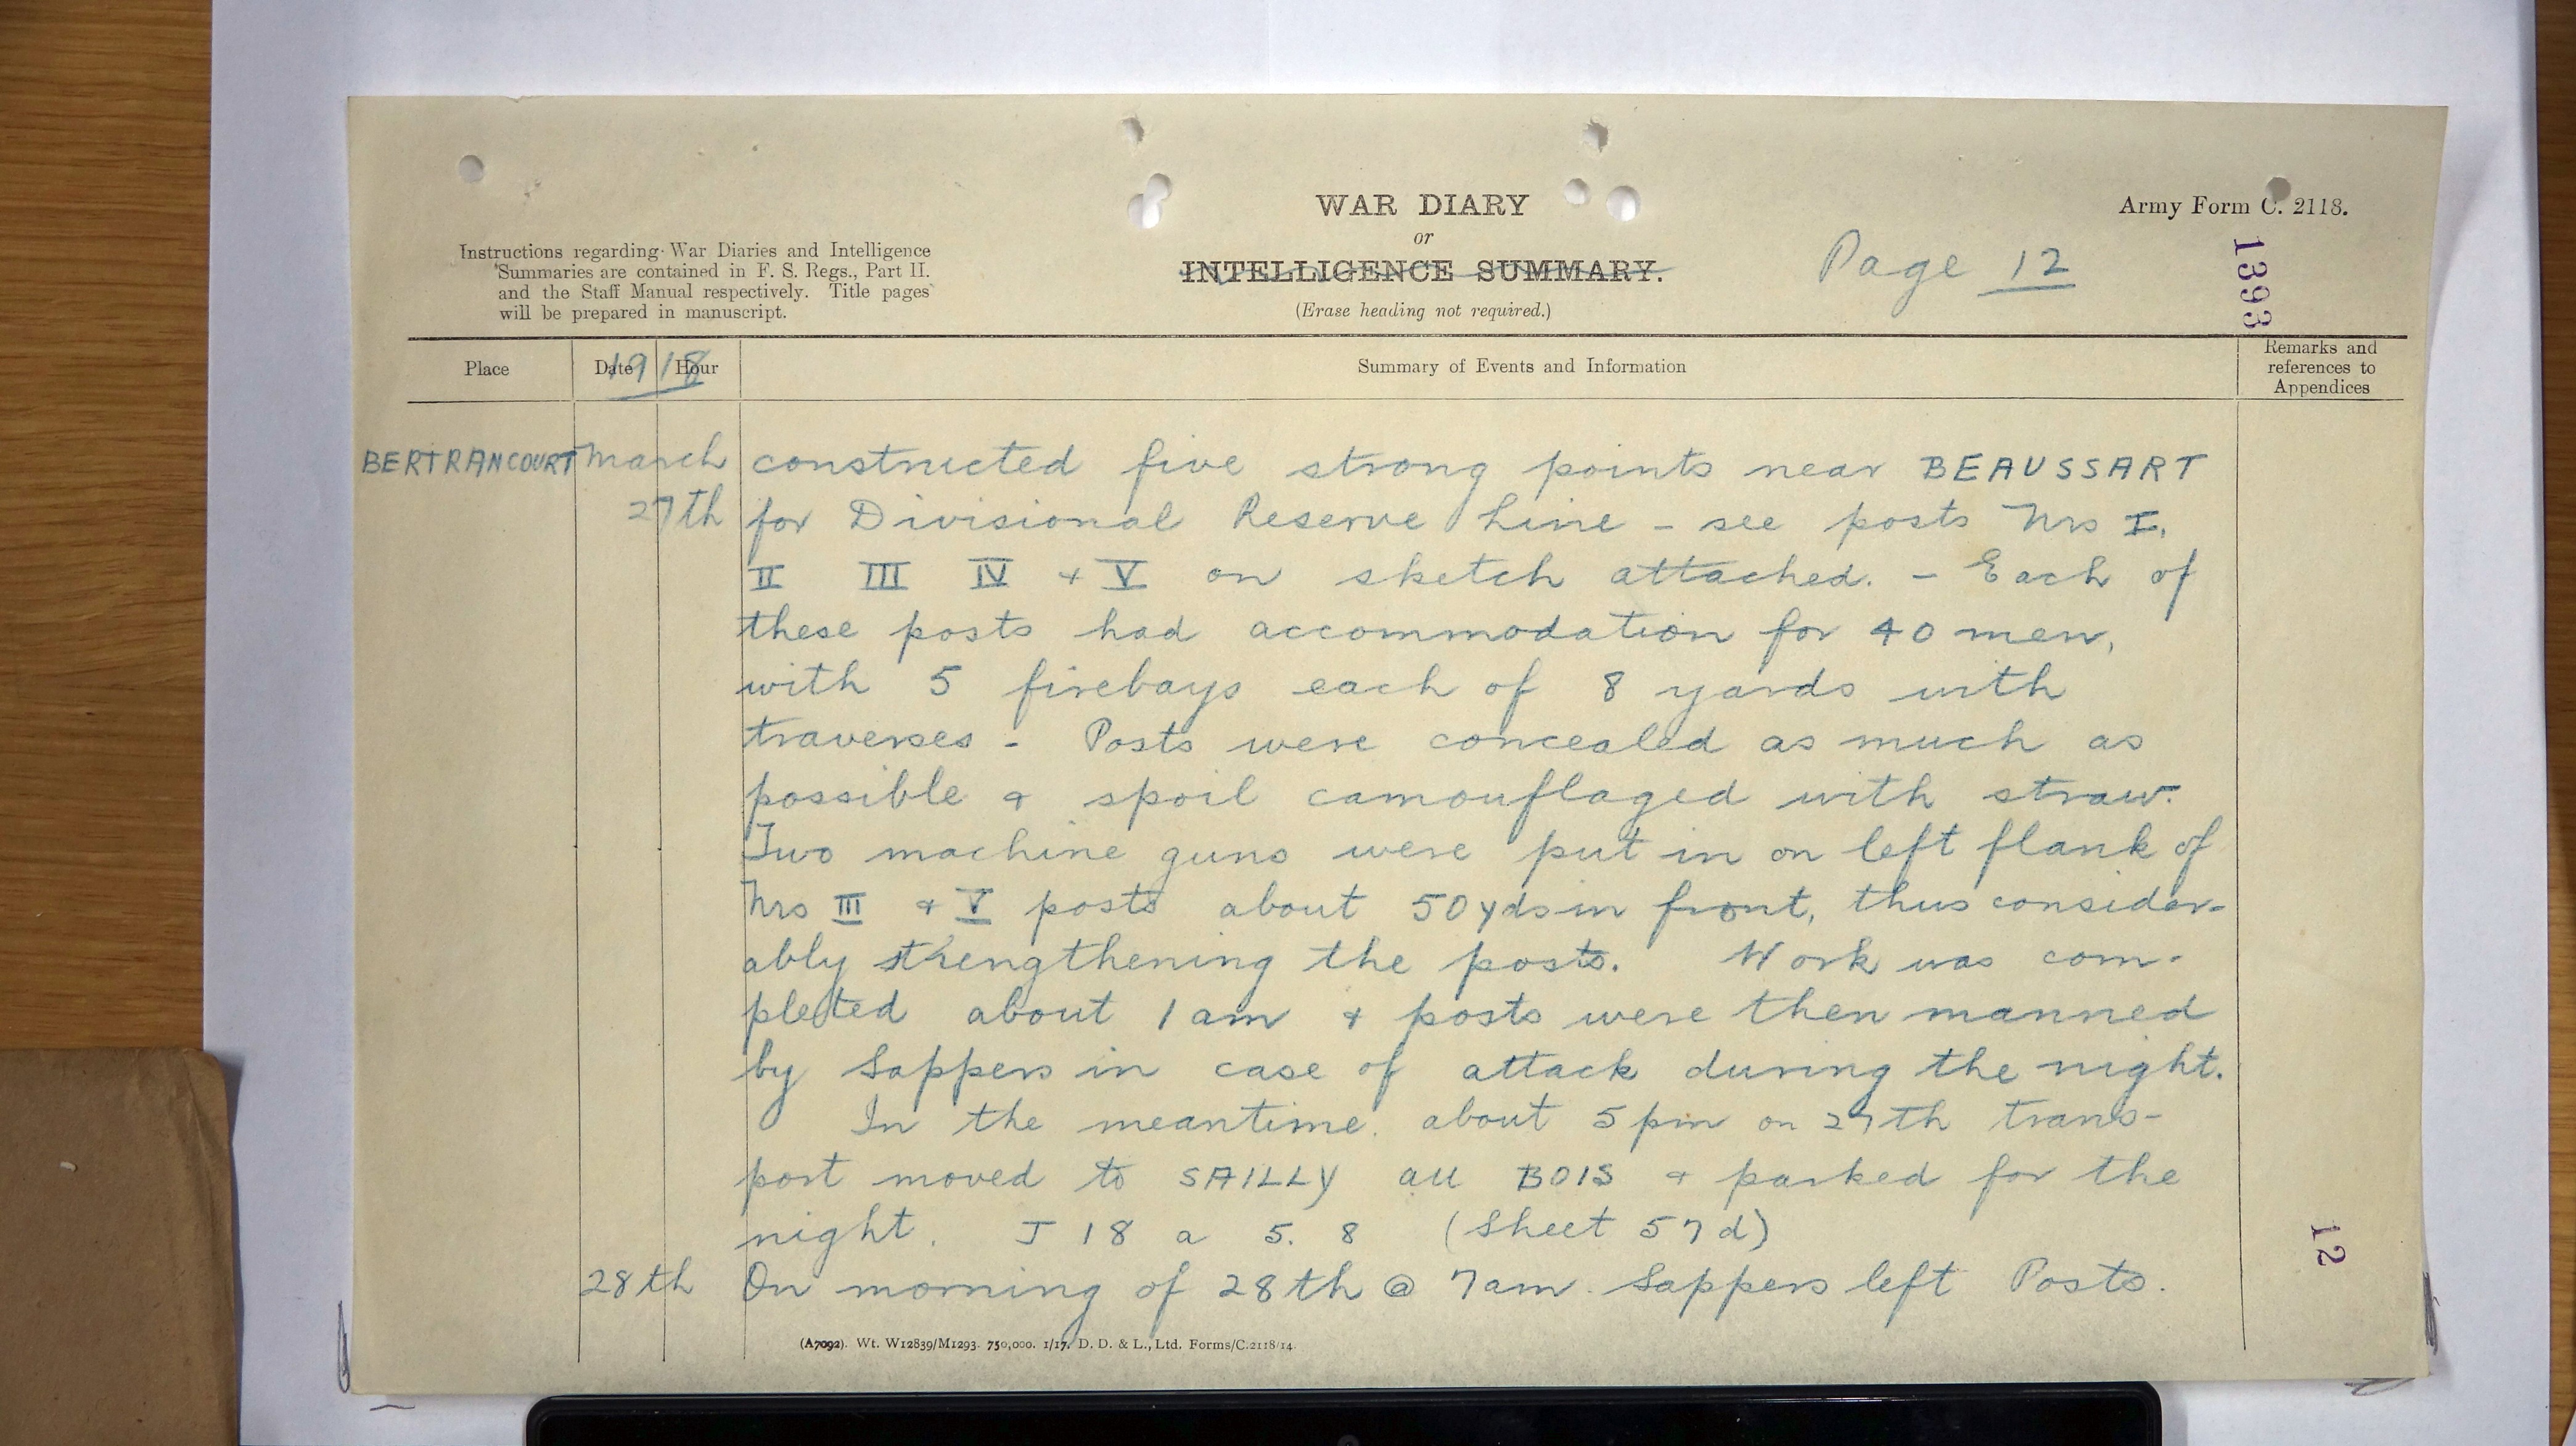 WAR DIARY
or
INTELLIGENCE SUMMARY.
(Erase heading not required.)
Army Form C. 2118.
Instructions regarding War Diaries and Intelligence
Summaries are contained in F. S. Regs., Part II.
and the Staff Manual respectively. Title pages
will be prepared in manuscript.
Page 12
1393
Place
Date
Hour
1918
Summary of Events and Information
Remarks and
references to
Appendices
BERTRANCOURT March constructed five strong points near BEAUSSART
27th for Divisional Reserve Line - see posts Nrs I,
II III IV + V on sketch attached. - Each of
these posts had accommodation for 40 men,
with 5 firebays each of 8 yards with
traverses - Posts were concealed as much as
possible + spoil camouflaged with straw.
Two machine guns were put in on left flank of
Nrs III + V posts about 50yds in front, thus consider-
ably strengthening the posts. Work was com-
pleted about 1 am + posts were then manned
by Sappers in case of attack during the night.
In the meantime. about 5 pm on 27th trans-
port moved to SAILLY au BOIS + parked for the
night. J 18 a 5. 8 (Sheet 57d)
28th On morning of 28th @ 7am. Sappers left Posts.
12
(A7092). Wt. W12839/M1293. 750,000. 1/17. D. D. & L., Ltd. Forms/C.2118/14.